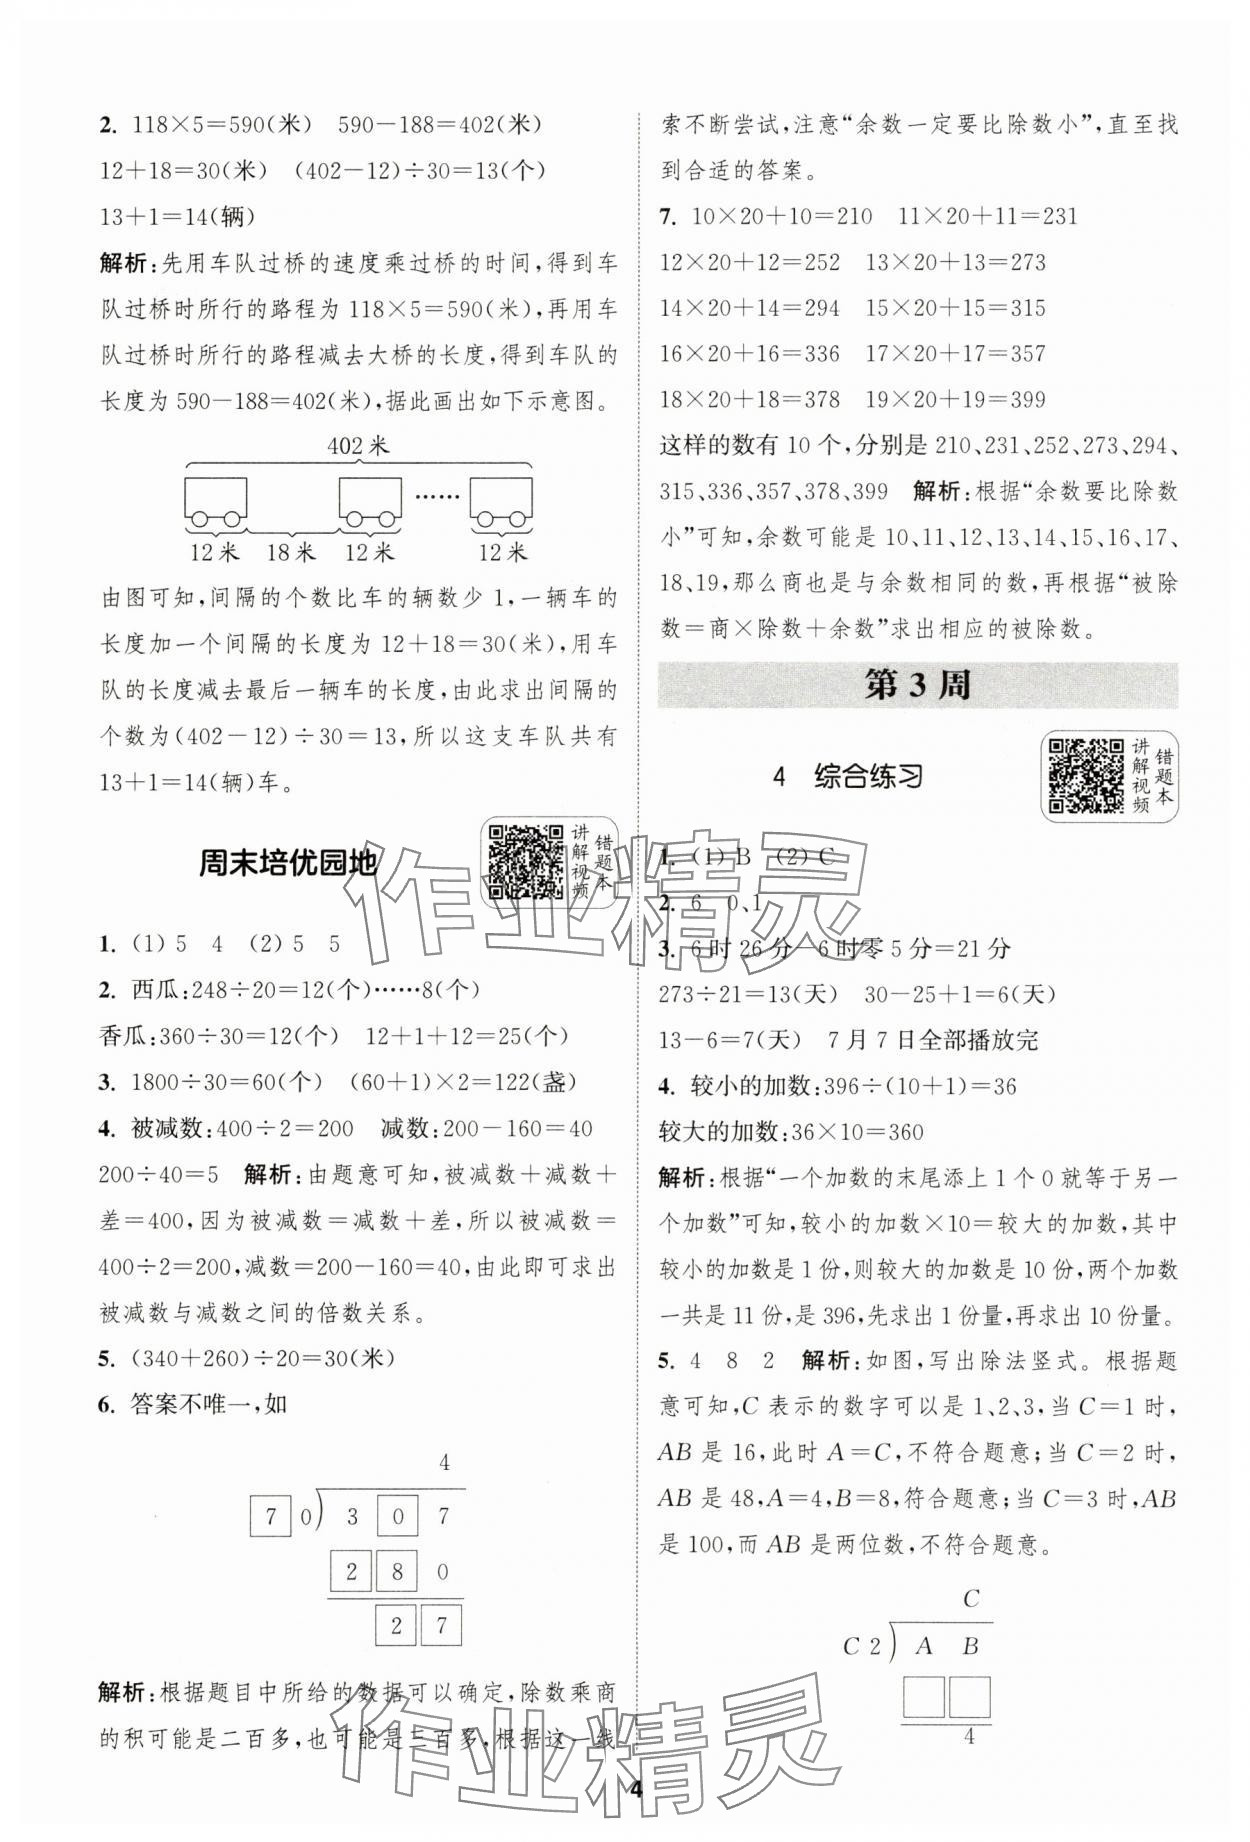 2. 118×5=590(米)　590-188=402(米)
12+18=30(米)　(402-12)÷30=13(个)
13+1=14(辆)
解析:先用车队过桥的速度乘过桥的时间,得到车
队过桥时所行的路程为 118×5=590(米),再用车
队过桥时所行的路程减去大桥的长度,得到车队的
长度为 590-188=402(米),据此画出如下示意图。
402 米
……
12 米　18 米　12 米　12 米
由图可知,间隔的个数比车的辆数少 1,一辆车的
长度加一个间隔的长度为 12+18=30(米),用车
队的长度减去最后一辆车的长度,由此求出间隔的
个数为(402-12)÷30=13,所以这支车队共有
13+1=14(辆)车。
周末培优园地
讲解视频
错题本
1. (1) 5　4　(2) 5　5
2. 西瓜:248÷20=12(个)……8(个)
香瓜:360÷30=12(个)　12+1+12=25(个)
3. 1800÷30=60(个)　(60+1)×2=122(盏)
4. 被减数:400÷2=200　减数:200-160=40
200÷40=5　解析:由题意可知,被减数+减数+
差=400,因为被减数=减数+差,所以被减数=
400÷2=200,减数=200-160=40,由此即可求出
被减数与减数之间的倍数关系。
5. (340+260)÷20=30(米)
6. 答案不唯一,如
4
7 0 ) 3 0 7
2 8 0
2 7
解析:根据题目中所给的数据可以确定,除数乘商
的积可能是二百多,也可能是三百多,根据这一线
索不断尝试,注意“余数一定要比除数小”,直至找
到合适的答案。
7. 10×20+10=210　11×20+11=231
12×20+12=252　13×20+13=273
14×20+14=294　15×20+15=315
16×20+16=336　17×20+17=357
18×20+18=378　19×20+19=399
这样的数有 10 个,分别是 210、231、252、273、294、
315、336、357、378、399　解析:根据“余数要比除数
小”可知,余数可能是 10、11、12、13、14、15、16、17、
18、19,那么商也是与余数相同的数,再根据“被除
数=商×除数+余数”求出相应的被除数。
第 3 周
4　综合练习
讲解视频
错题本
1. (1) B　(2) C
2. 6　0、1
3. 6 时 26 分-6 时零 5 分=21 分
273÷21=13(天)　30-25+1=6(天)
13-6=7(天)　7 月 7 日全部播放完
4. 较小的加数:396÷(10+1)=36
较大的加数:36×10=360
解析:根据“一个加数的末尾添上 1 个 0 就等于另一
个加数”可知,较小的加数×10=较大的加数,其中
较小的加数是 1 份,则较大的加数是 10 份,两个加数
一共是 11 份,是 396,先求出 1 份量,再求出 10 份量。
5. 4　8　2　解析:如图,写出除法竖式。根据题
意可知,C 表示的数字可以是 1、2、3,当 C=1 时,
AB 是 16,此时 A=C,不符合题意;当 C=2 时,
AB 是 48,A=4,B=8,符合题意;当 C=3 时,AB
是 100,而 AB 是两位数,不符合题意。
C
C 2 ) A B
4
作业精灵
作业精灵
4